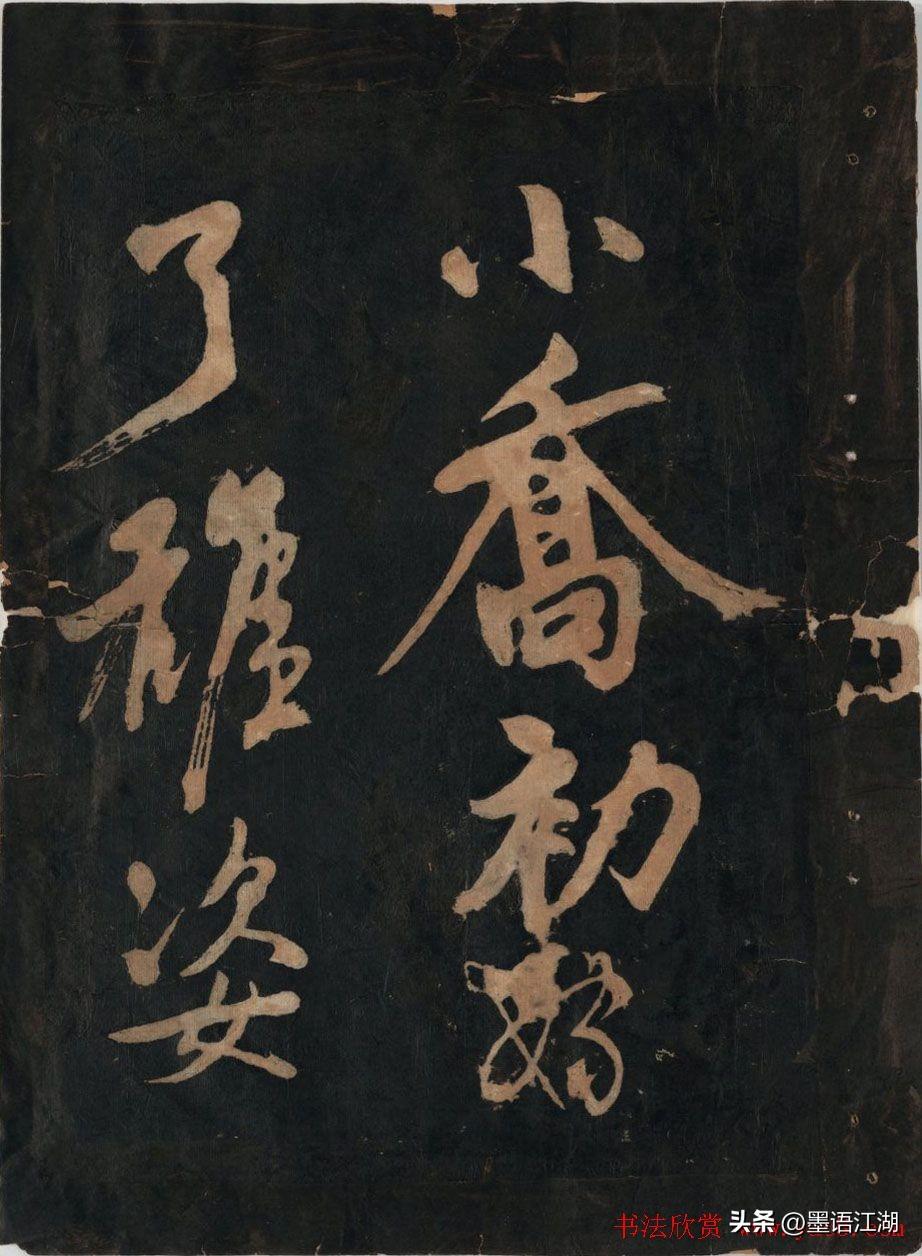 小喬初嫁
了雄姿
书法欣赏
头条 @墨语江湖